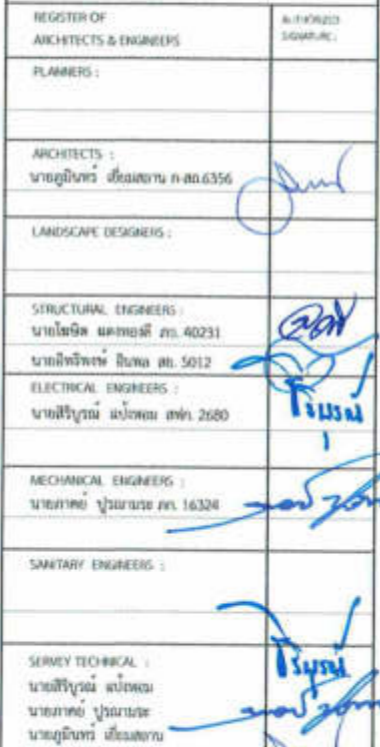 REGISTER OF
ARCHITECTS & ENGINEERS
AUTHORIZED
SIGNATURE :
PLANNERS :
ARCHITECTS :
นายภูมินทร์ เอี่ยมสถาน ภ-สถ.6356
LANDSCAPE DESIGNERS :
STRUCTURAL ENGINEERS :
นายโฆษิต แดงทองดี ภย. 40231
นายอิทธิพงษ์ สย. 5012
ELECTRICAL ENGINEERS :
นายสิริบูรณ์ แป้งหอม สฟก. 2680
สิริบูรณ์
MECHANICAL ENGINEERS :
นายภาคย์ ปูรณามระ ภก. 16324
SANITARY ENGINEERS :
SERVEY TECHNICAL :
สิริบูรณ์
นายสิริบูรณ์ แป้งหอม
นายภาคย์ ปูรณามระ
นายภูมินทร์ เอี่ยมสถาน